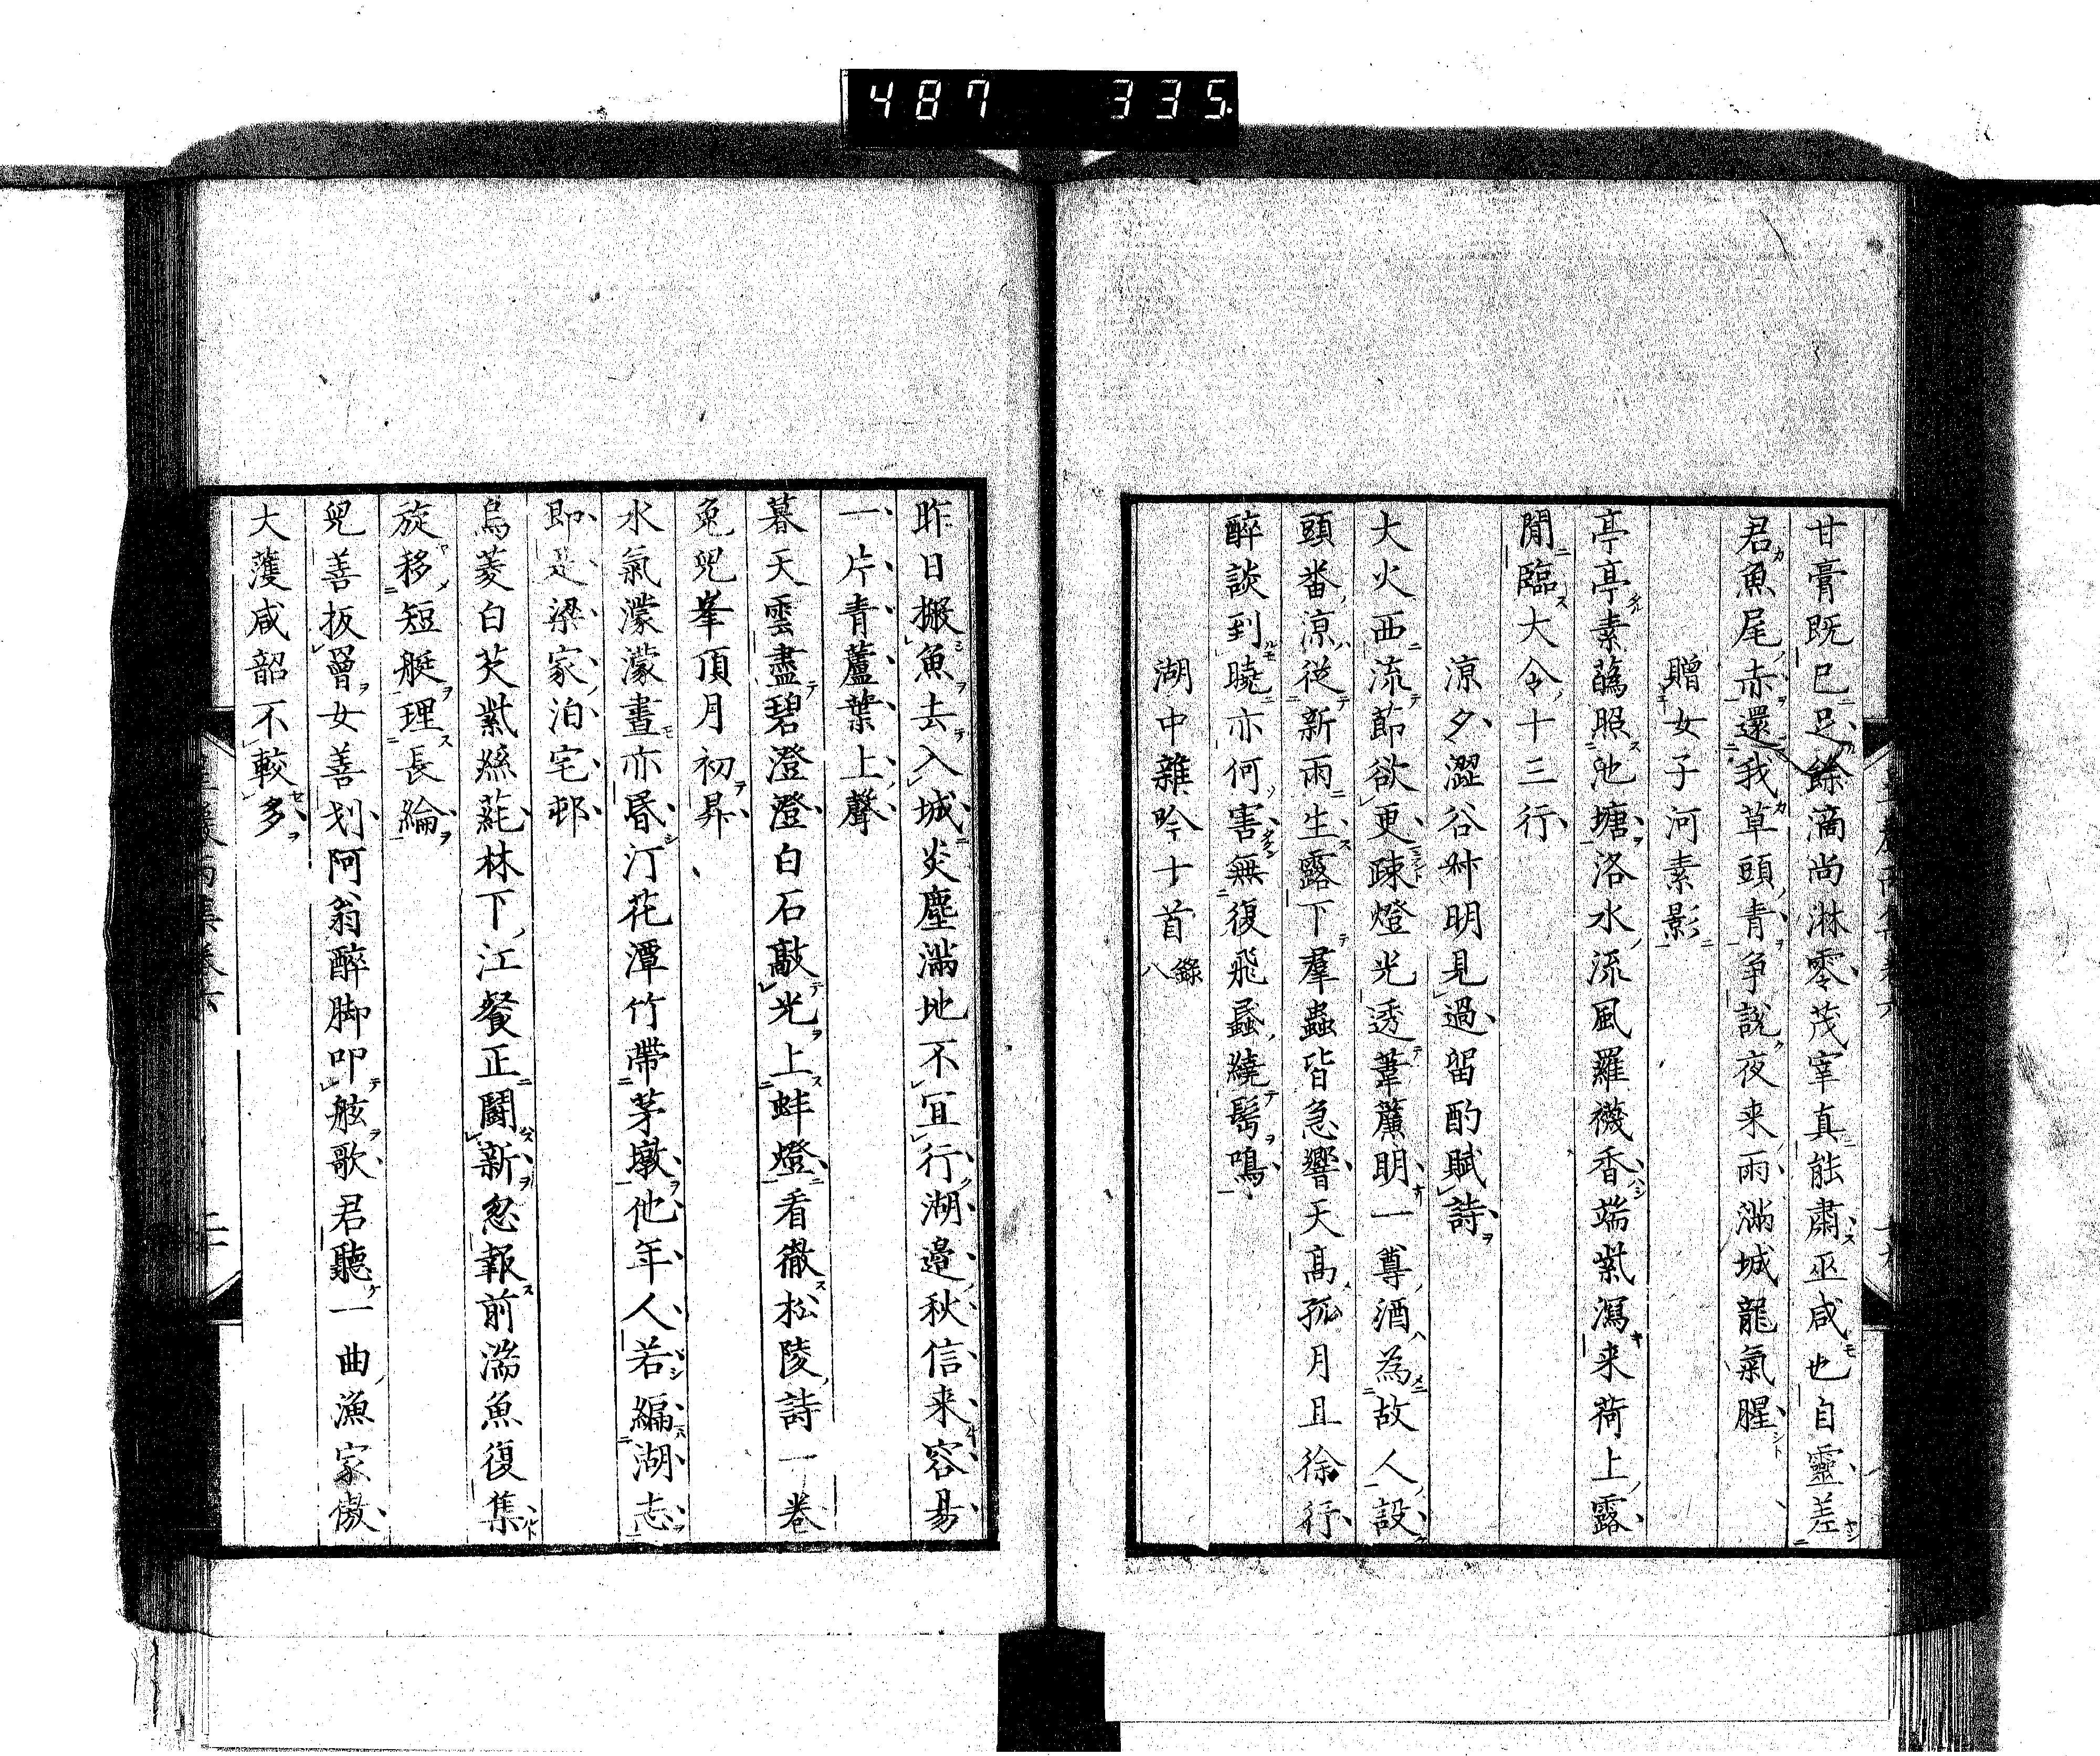 487 335
甘膏既已足餘滴尚淋零茂宰真能肅巫咸也自靈差
君魚尾赤還我草頭青争説夜来雨滿城龍氣腥
贈女子河素影
亭亭素蕅照池塘洛水流風羅襪香端紫瀉来荷上露
閒臨大令十三行
涼夕澀谷艸明見過留酌賦詩
大火西流節欲更疎燈光透葦簾明一尊酒為故人設
頭番涼従新雨生露下羣蟲皆急響天高孤月且徐行
醉談到曉亦何害無復飛蟁繞髩鳴
湖中雜吟十首 錄八
昨日搬魚去入城炎塵滿地不宜行湖邉秋信来容易
一片青蘆葉上聲
暮天雲盡碧澄澄白石敲光上蚌燈看徹松陵詩一卷
兔兒峯頂月初昇
水氣濛濛晝亦昏汀花潭竹帶茅墩他年人若編湖志
即是梁家泊宅邨
烏菱白芡紫絲蓴林下江餐正鬪新忽報前湍魚復集
旋移短艇理長綸
兒善扳罾女善划阿翁醉脚叩舷歌君聽一曲漁家傲
大蒦咸韶不較多